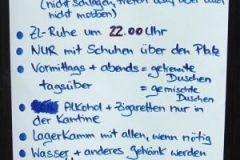 (nicht schlagen, treten
nicht mobben)
• ZL-Ruhe um 22.00 Uhr
• NUR mit Schuhen über den Platz
• Vormittags + abends = getrennte Duschen
tagsüber = gemischte Duschen
• Alkohol + Zigaretten nur in
der Kantine
• Lagerkamm mit allen, wenn nötig
• Wasser + anderes getränk werden